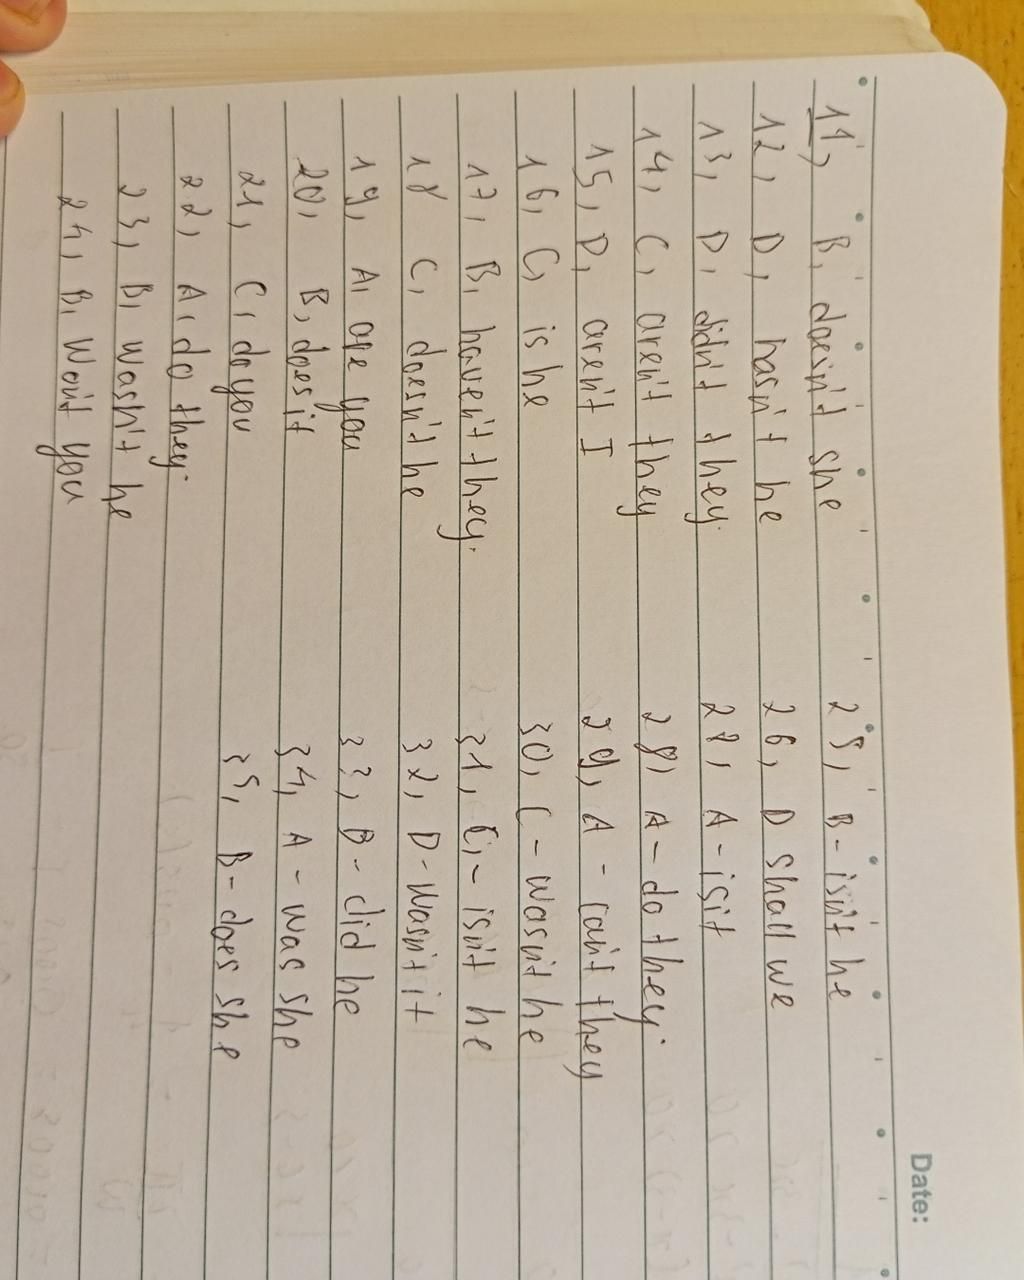 Date:
11, B, doesn't she
12, D, hasn't he
13, D, didn't they.
14, C, aren't they
15, D, aren't I
16, C, is he
17, B, haven't they.
18 C, doesn't he
19, A, are you
20, B, does it
21, C, do you
22, A, do they.
23, B, wasn't he
24, B, Won't you
25, B - isn't he
26, D shall we
27, A - is it
28, A - do they.
29, A - can't they
30, C - wasn't he
31, C, - isn't he
32, D - wasn't it
33, B - did he
34, A - was she
35, B - does she